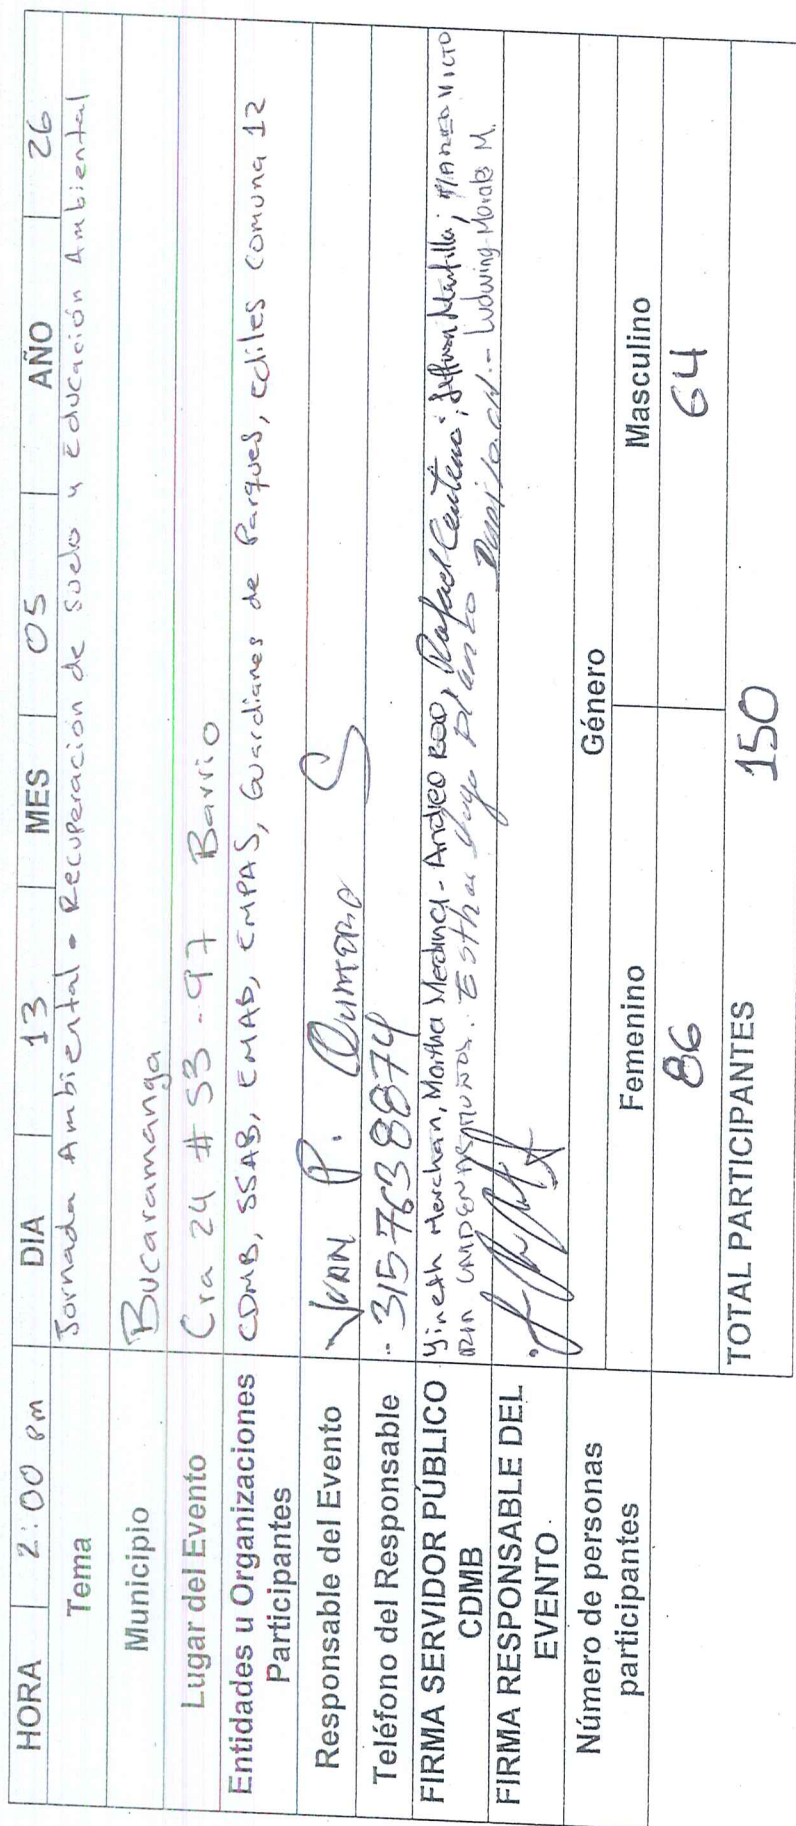 HORA 2:00 pm DIA 13 MES 05 AÑO 26
Tema Jornada Ambiental - Recuperación de Suelo y Educación Ambiental
Municipio Bucaramanga
Lugar del Evento Cra 24 # 53-97 Barrio
Entidades u Organizaciones Participantes CDMB, SSAB, EMAB, EMPAS, Guardianes de Parques, ediles Comuna 12
Responsable del Evento P. Quintero S
Teléfono del Responsable 3157638874
FIRMA SERVIDOR PÚBLICO CDMB Yineth Merchan, Martha Medina - Rafael Centeno; Mantilla;
Esther - Ludwing Morales M.
FIRMA RESPONSABLE DEL EVENTO
Número de personas participantes
Género
Femenino Masculino
86 64
TOTAL PARTICIPANTES 150